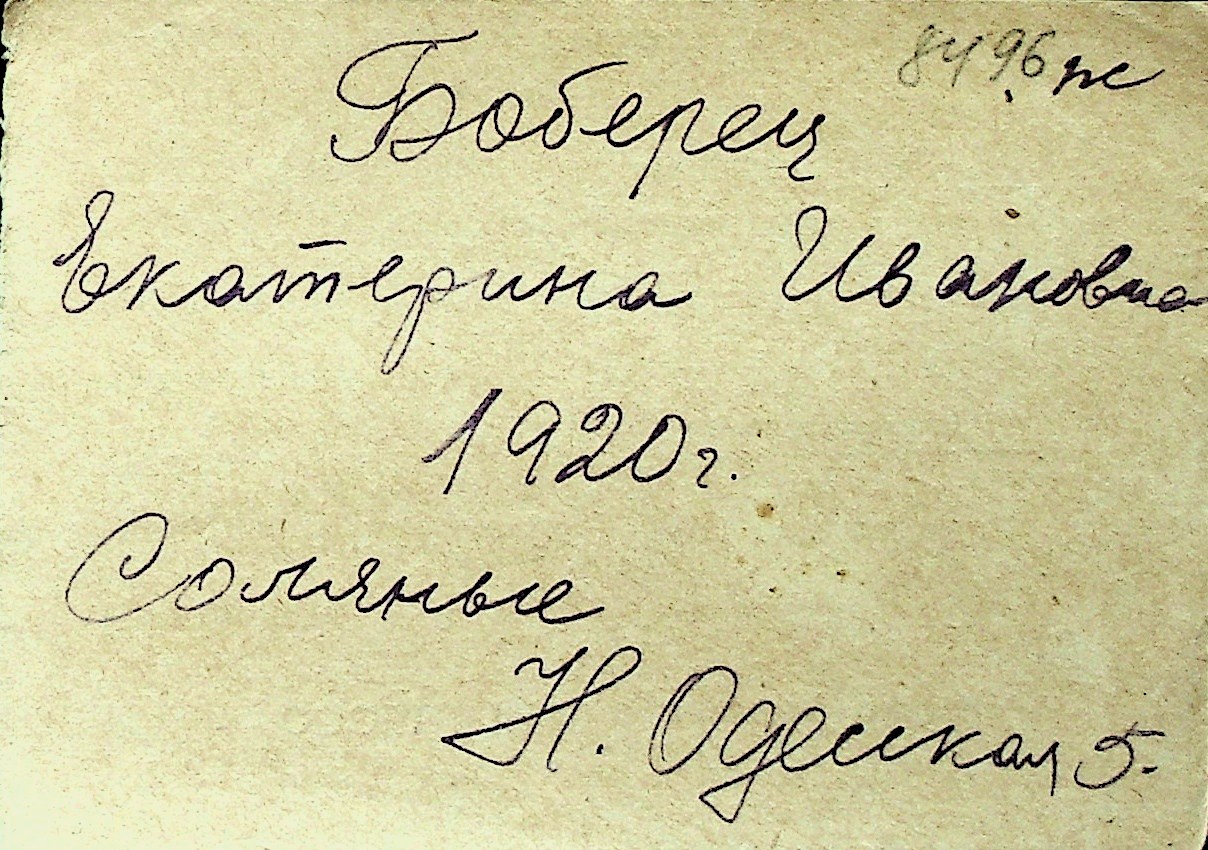 8496 ж
Боберец
Екатерина Ивановна
1920г.
Соляные
Н. Одесская 5.